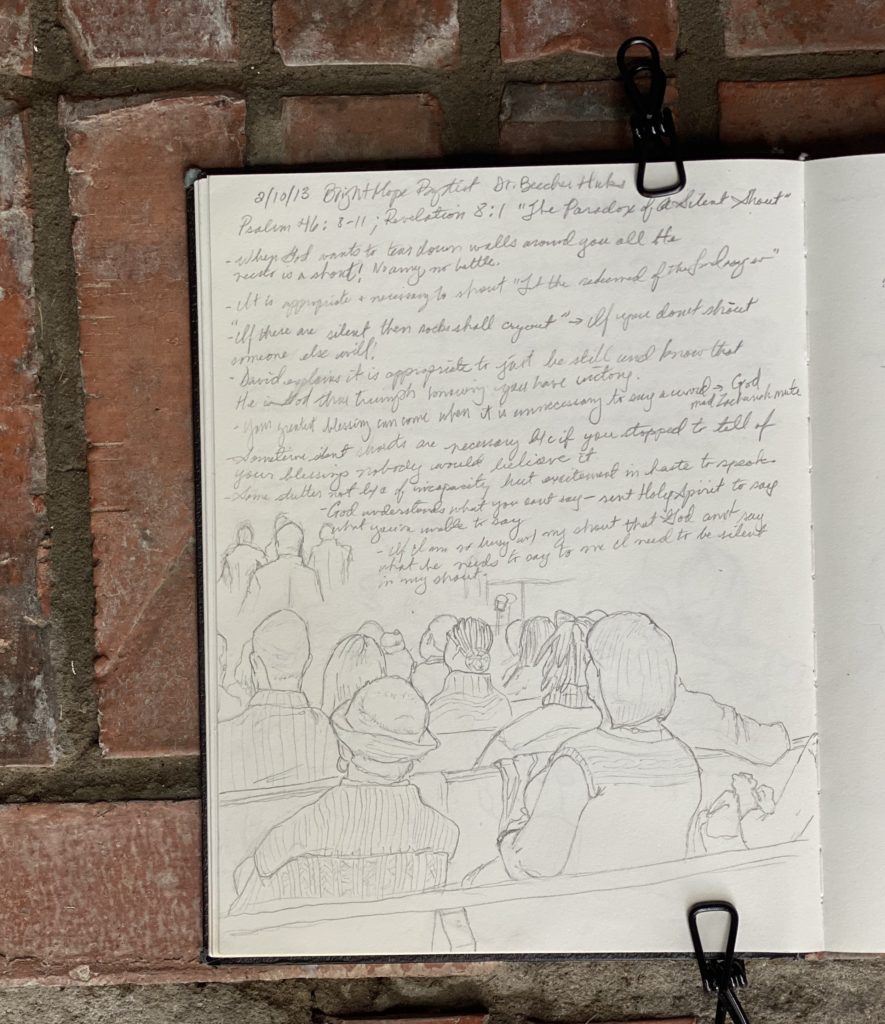 2/10/13 Bright Hope Baptist Dr. Beecher Hicks
Psalm 46: 8-11; Revelation 8:1 "The Paradox of A Silent Shout"
- When God wants to tear down walls around you all He
needs is a shout! No army no battle.
- It is appropriate & necessary to shout "Let the redeemed of the Lord say so"
"If these are silent then rocks shall cry out" → If you don't shout
someone else will!
- David explains it is appropriate to just be still and know that
He is God thus triumph knowing you have victory.
- Your greatest blessing can come when it is unnecessary to say a word → God
made Zachariah mute
- Sometimes silent shouts are necessary b/c if you stopped to tell of
your blessings nobody would believe it
- Some stutter not b/c of incapacity but excitement in haste to speak.
- God understands what you can't say - sent Holy Spirit to say
what you're unable to say
- If I am so busy w/ my shout that God can't say
what he needs to say to me I need to be silent
in my shout.